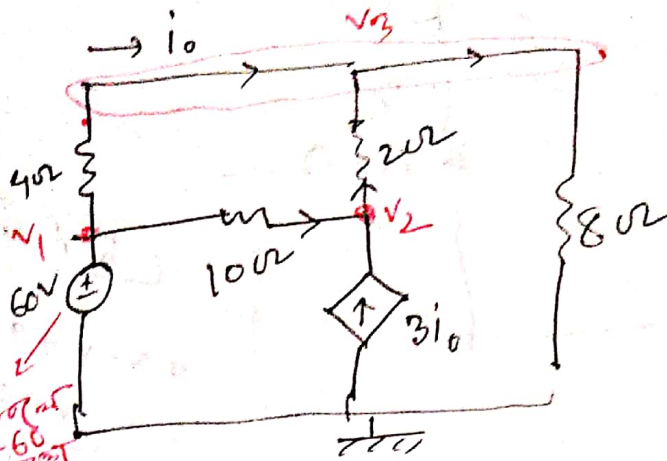 i₀
v3
4Ω
2Ω
v1
v2
10Ω
8Ω
60V
±
3i₀
60